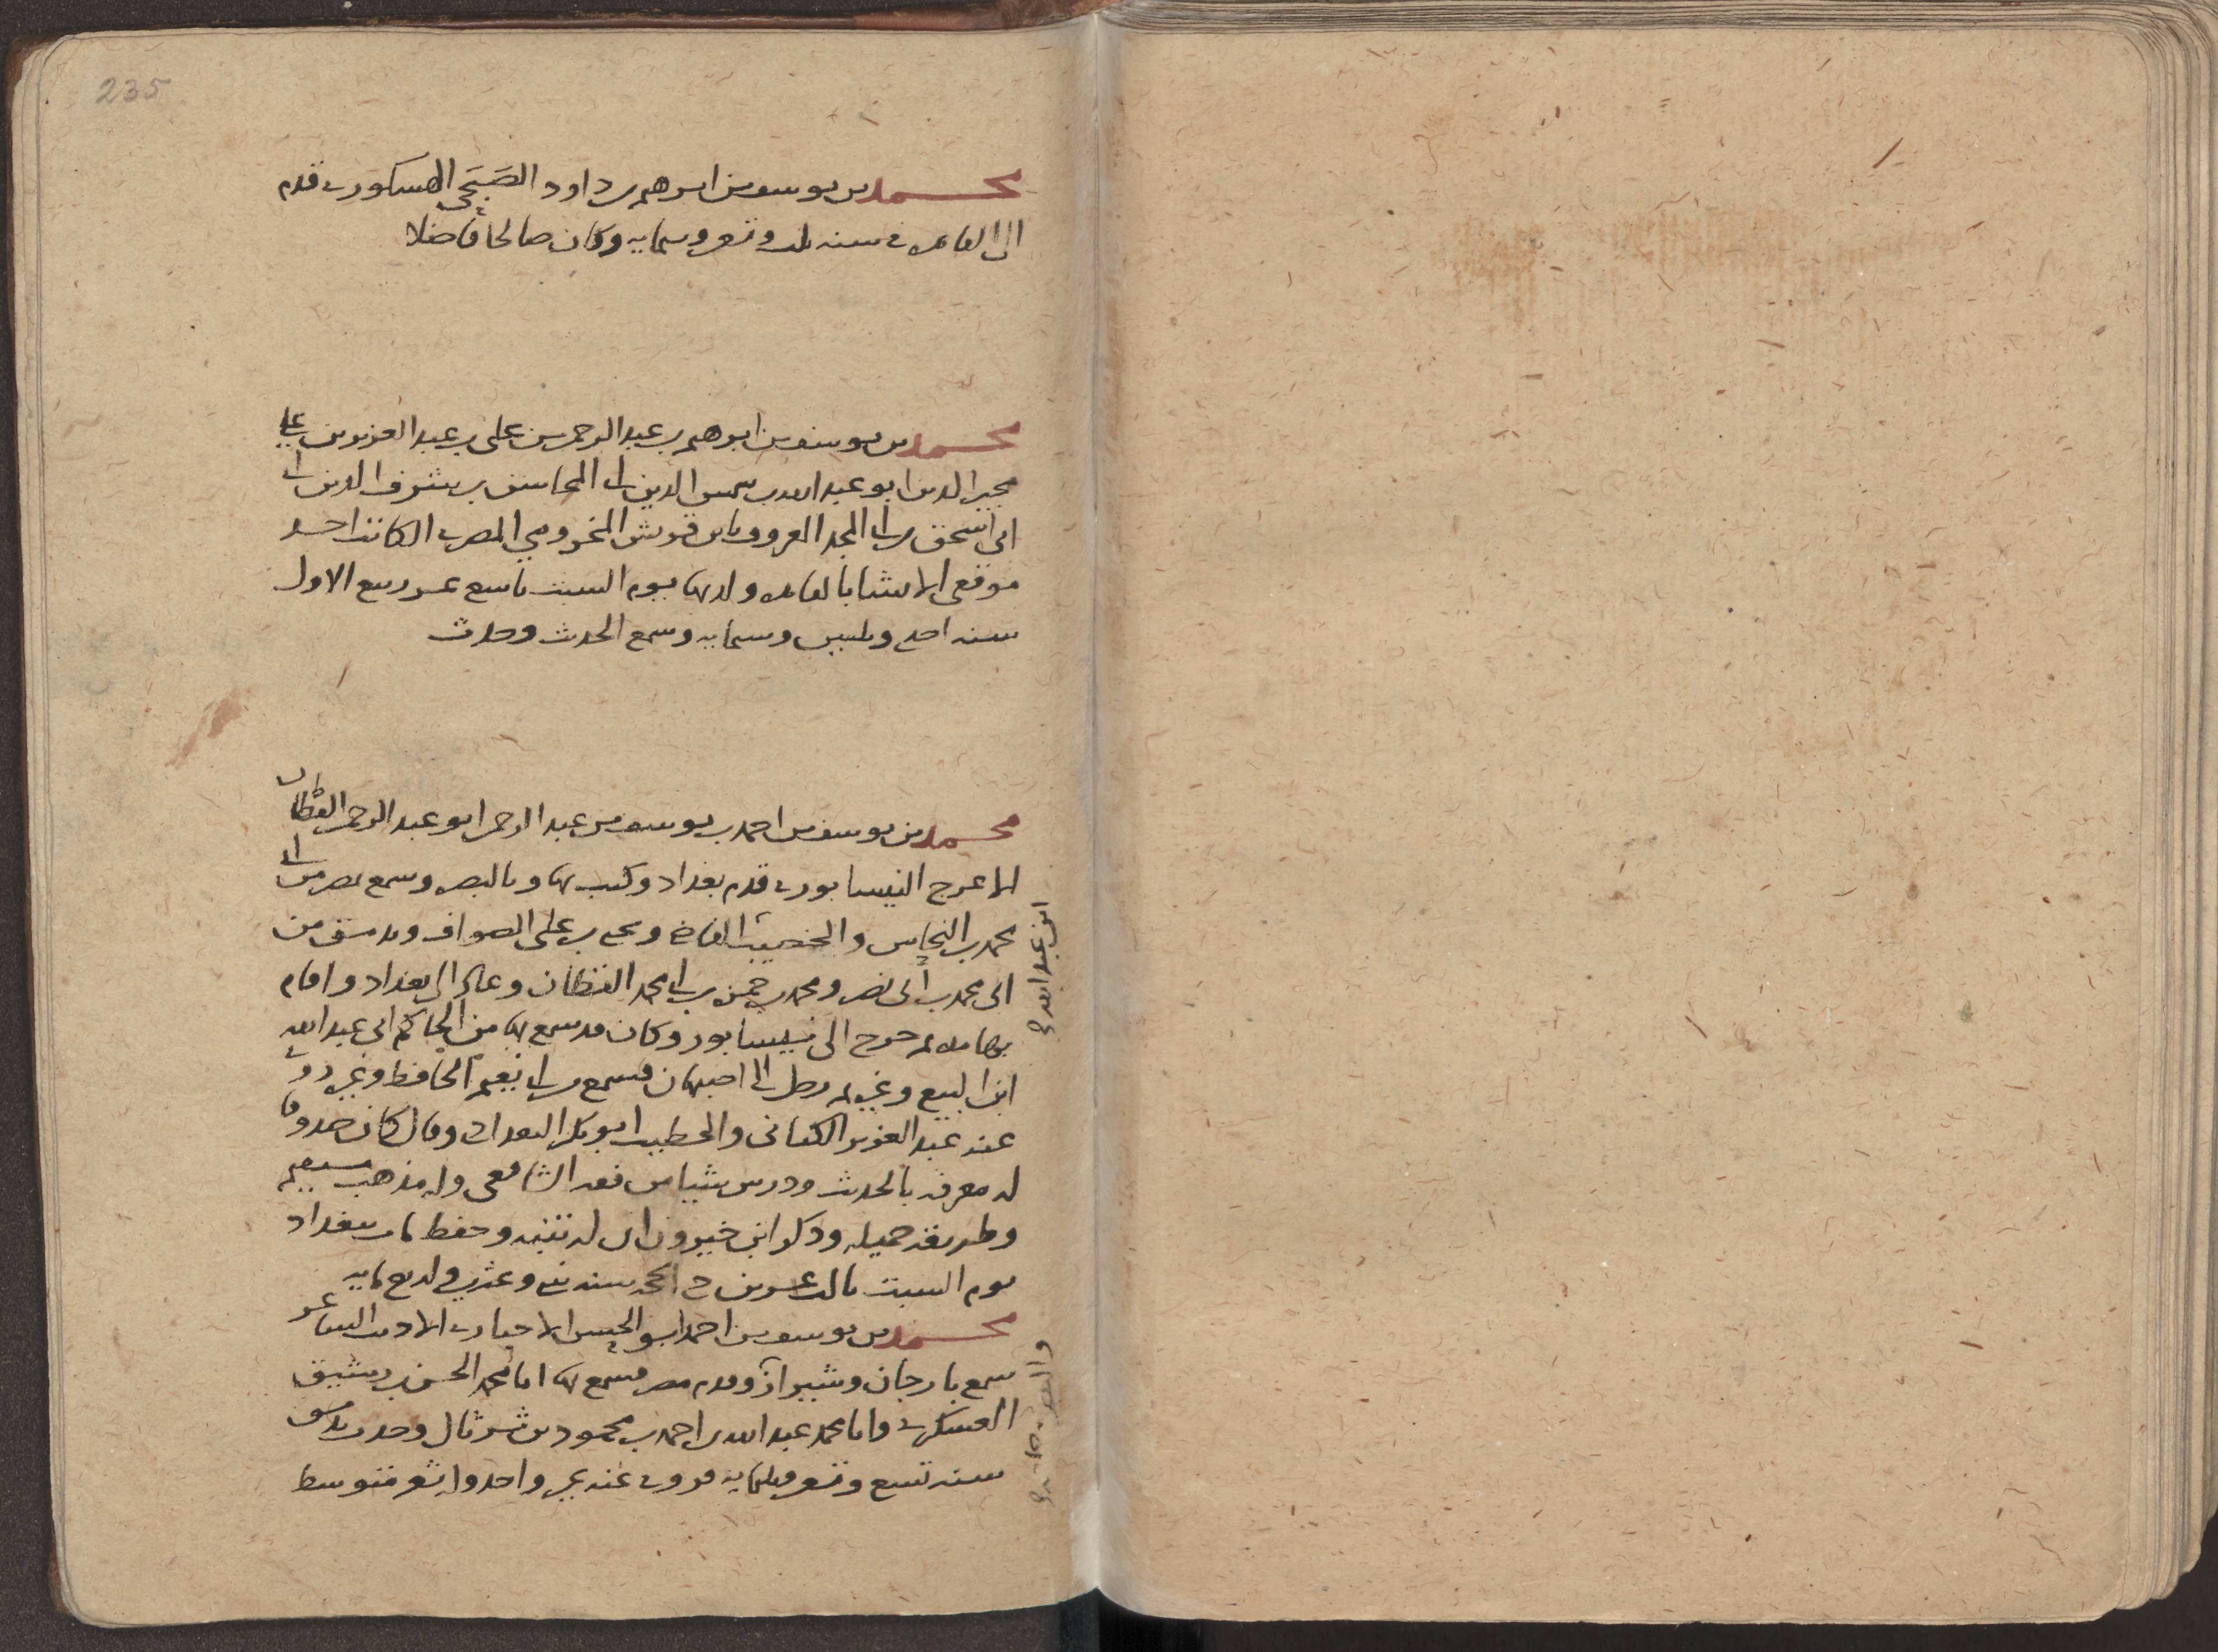 235
محمد بن يوسف بن ابرهيم بن داود الصَبَحي الهسكوري قدم
الى القاهره في سنه ثلث وتسعين وستمايه وكان صالحا فاضلا
محمد بن يوسف بن ابرهيم بن عبد الرحمن بن على بن عبد العزيز بن علي
مجير الدين ابو عبد الله بن شمس الدين ابي المحاسن بن شرف الدين
ابي اسحق بن ابي المجد المعروف بابن قريش المخزومي المصري الكاتب احد
موقعي الانشا بالقاهره ولد بها يوم السبت تاسع عشر ربيع الاول
سنه احدى وثلثين وستمايه وسمع الحديث وحدث
محمد بن يوسف بن احمد بن يوسف بن عبد الرحمن ابو عبد الرحمن القطان
الاعرج النيسابوري قدم بغداد وكتب بها وبالبصره وسمع بمصر من ابي
محمد بن النحاس والخصيب القاضي ويحيى بن على الصواف وبدمشق من
ابي محمد بن ابي نصر ومحمد بن حمزه بن ابي محمد القطان وعاد الى بغداد واقام
بها مده ثم خرج الى نيسابور وكان قد سمع بها من الحاكم ابي عبد الله
ابن عبد الله
ابن البيع وغيره ثم رحل الى اصبهان فسمع من ابي نعيم الحافظ وغيره روى
عنه عبد العزيز الكتاني والخطيب ابو بكر البغدادي وقال كان صدوقا
له معرفه بالحديث ودرس شيا من فقه الشافعي وله مذهب مستقيم
وطريقه جميله وذكر ابن خيرون ان له تنبه وحفظ مات ببغداد
يوم السبت ثالث عشرين ذي الحجه سنه ثنتي وعشرين واربع مايه
محمد بن يوسف بن احمد ابو الحسن الاخباري الاديب الشاعر
سمع بارجان وشيراز وقدم مصر فسمع بها ابا محمد الحسن بن رشيق
العسكري وابا محمد عبد الله بن احمد بن محمود بن شرثال وحدث بدمشق
سنه تسع وتسعين وثلثمايه فروى عنه غير واحد وله شعر متوسط